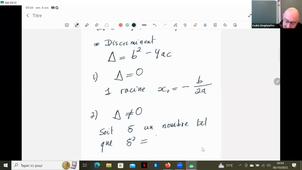 Titre
* Discriminant
Δ = b² - 4ac
1) Δ = 0
1 racine x₁ = - b/2a
2) Δ ≠ 0
Soit δ un nombre tel
que δ² =
Taper ici pour rechercher